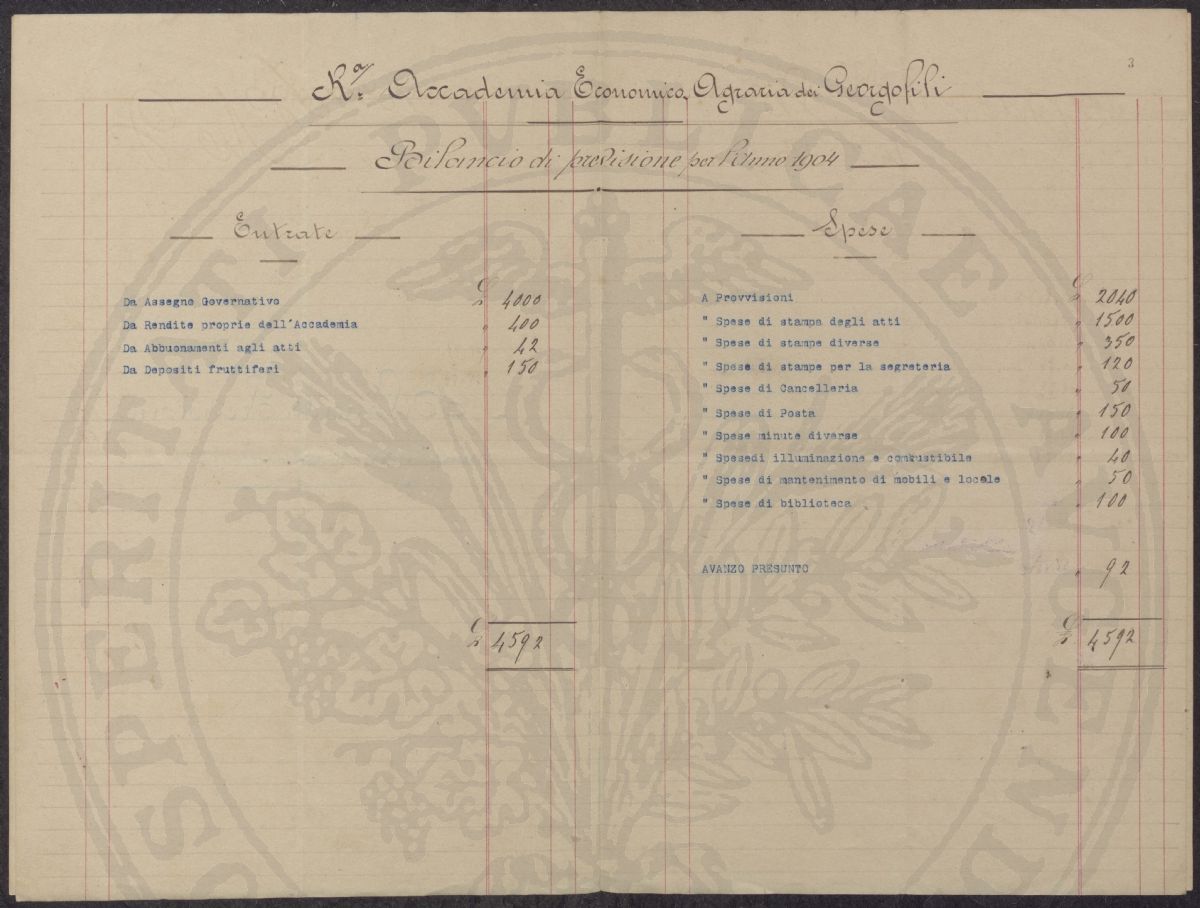 3
R.ª Accademia Economico Agraria dei Georgofili
Bilancio di previsione per l'Anno 1904
Entrate
£
Da Assegno Governativo 4000
Da Rendite proprie dell'Accademia " 400
Da Abbuonamenti agli atti " 42
Da Depositi fruttiferi " 150
£ 4592
Spese
£
A Provvisioni 2040
" Spese di stampa degli atti " 1500
" Spese di stampe diverse " 350
" Spese di stampe per la segreteria " 120
" Spese di Cancelleria " 50
" Spese di Posta " 150
" Spese minute diverse " 100
" Spesedi illuminazione e combustibile " 40
" Spese di mantenimento di mobili e locale " 50
" Spese di biblioteca " 100
AVANZO PRESUNTO " 92
£ 4592
PUBLICAE
PROSPERITATI
AUGENDAE